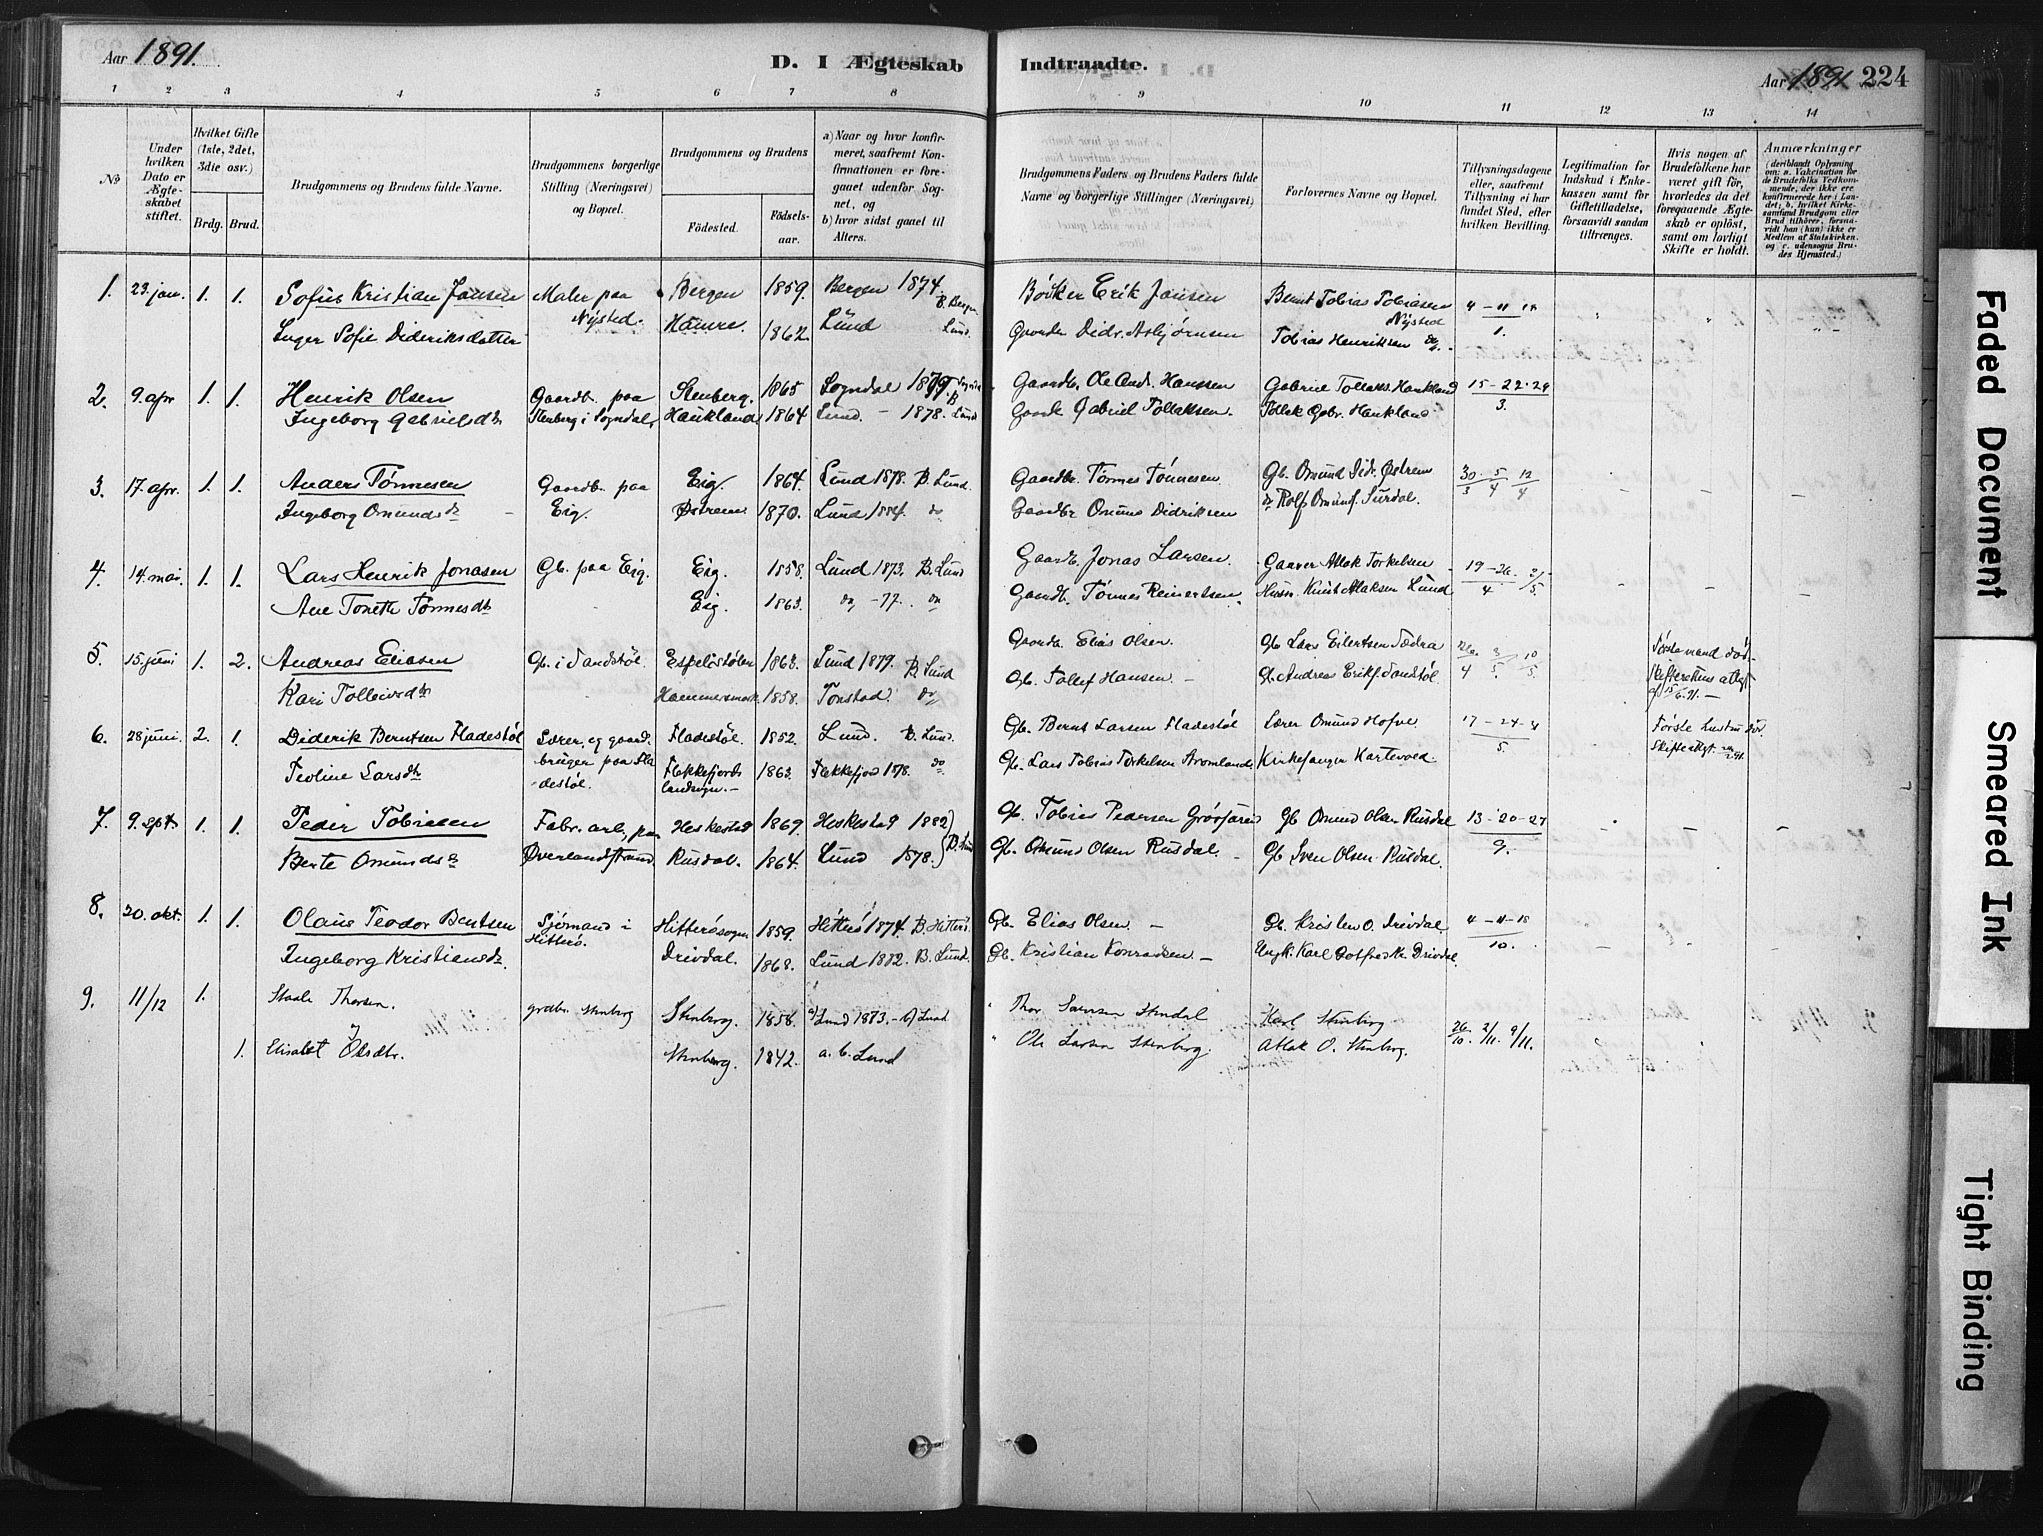 Aar 1891.
D. I Ægteskab Indtraadte.
Aar 1891 224
1 2 3 4 5 6 7 8 9 10 11 12 13 14
No
Under hvilken Dato er Ægteskabet stiftet.
Hvilket Gifte (1ste, 2det, 3die osv.)
Brdg. Brud.
Brudgommens og Brudens fulde Navne.
Brudgommens borgerlige Stilling (Næringsvei) og Bopæl.
Brudgommens og Brudens
Fødested.
Fødselsaar.
a) Naar og hvor konfirmeret, saafremt Konfirmationen er foregaaet udenfor Sognet, og
b) hvor sidst gaaet til Alters.
Brudgommens Faders og Brudens Faders fulde Navne og borgerlige Stillinger (Næringsvei)
Forlovernes Navne og Bopæl.
Tillysningsdagene eller, saafremt Tillysning ei har fundet Sted, efter hvilken Bevilling.
Legitimation for Indskud i Enkekassen samt for Giftetilladelse, forsaavidt saadan tiltrænges.
Hvis nogen af Brudefolkene har været gift før, hvorledes da det foregaaende Ægteskab er opløst, samt om lovligt Skifte er holdt.
Anmærkninger (deriblandt Oplysning om: a. Vakcination for de Brudefolks Vedkommende, der ikke ere konfirmerede her i Landet; b. hvilket Kirkesamfund Brudgom eller Brud tilhører, forsaavidt han (hun) ikke er Medlem af Statskirken, og c. udensogns Brudes Hjemsted.)
1. 23. jan. 1. 1. Sofus Kristian Jansen Maler paa Nysted. Bergen 1859. Bergen 1874 B. Bergen Bødker Erik Jansen Bernt Tobias Tobiasen Nysted 4 – 11 18
Inger Sofie Dideriksdatter Haure. 1862. Lund Lund. Gaardbr Didr. Asbjørnsen Tobias Henriksen do. 1.
2. 9. apr 1. 1. Henrik Olsen Gaardb. paa Stenberg. 1865 Sogndal 1879. Sogndal Gaardb. Ole And. Hanssen Gabriel Tollaks. Haukland 15 – 22 – 29
Ingeborg Gabrielsdtr Stenberg i Sogndal. Haukland 1864 Lund. – 1878. B Lund Gaardb Gabriel Tollaksen. Tollak Gabr. Haukland 3.
3. 17. apr. 1. 1. Anders Tønnesen Gaardb. paa Eig. 1864. Lund 1878. B. Lund. Gaardbr. Tønnes Tønnesen Gb. Omund Did. Østrem 30/3 5/4 12/4
Ingeborg Omundsdr – Eig. Østrem 1870. Lund 1884. do Gaardbr Omund Didriksen do Rolf Omunds. Surdal.
4. 14. mai. 1. 1. Lars Henrik Jonasen Gb. paa Eig. Eig. 1858. Lund 1873. B. Lund Gaardb. Jonas Larsen. Garver Atlak Torkelsen 19 – 26. 3/5.
Ane Toneth Tønnesdtr Eig. 1863. do, – 77. do Gaardb. Tønnes Reinertsen. Husm. Knut Atlaksen Lund 4
5. 15. juni 1. 2. Andreas Eliasen Gb. i Sandstøl. Espelistølen 1863. Lund 1879. B. Lund Gaardb. Elias Olsen. Gb. Lars Eilertsen 26/4 3/5. 10/5. Første mand død.
Kari Tollevsdtr 1858. Tonstad. do Gb. Tollef Hansen – Gb. Andreas Eriks. Sandstøl. Skifterettens attest af 15/6. 91. –
6. 28 juni. 2. 1. Diderik Berntsen Fladestøl Lærer og gaardbruger paa Fladestøl. Fladestøl. 1852. Lund. B. Lund. Gb. Bernt Larsen Fladestøl Lærer Omund Hofve 17 – 24 – 31 Første hustru død.
Teoline Larsdtr Flekkefjords landsogn. – 1863. Flekkefjord 1878. do Gb. Lars Tobias Torkelsen Aromland. Kirkesanger Kartevold. 5. Skifteattest
7. 9. spt. 1. 1. Peder Tobiasen Fabr. arb. paa Heskestad 1869. Heskestad 1882 Gb. Tobias Pedersen Gb Omund Olsen Rusdal 13 – 20 – 27
Berte Omundsdr Øverlandstrand. Rusdal. 1864. Lund 1878. B. Lund Gb. Omund Olsen Rusdal. – Gb Sven Olsen Rusdal. 9.
8. 20. okt. 1. 1. Olaus Teodor Bentsen Sjømand i Hitterø. Hitterøsogn 1859. Hitterø 1874. B. Hitterø. Gb. Elias Olsen. – Gb. Kristen O. Drivdal. 4 – 11 – 18
Ingeborg Kristiansdr. Drivdal. 1868. Lund 1882. B. Lund. Gb. Kristian Konradsen – Ungk. Karl Gotfred K. Drivdal. 10.
9. 11/12 1. Staale Thorsen. grdbr. Stenberg Stenberg. 1858. a) Lund 1873. – b) Lund " Thor Karl Stenberg 26/10. 2/11. 9/11.
1. Elisabet Olsdtr. Stenberg. 1842. a. b. Lund " Ole Larsen Stenberg. Atlak O. Stenberg.
Faded Document
Smeared Ink
Tight Binding